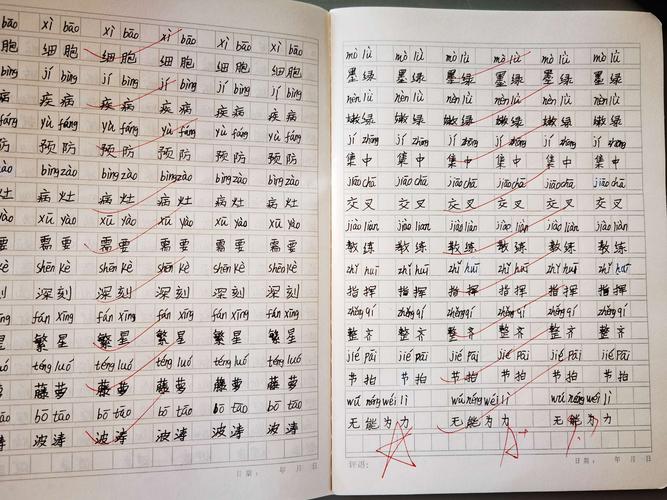 bāo xì bāo xì bāo xì bāo xì bāo xì bāo
胞 细胞 细胞 细胞 细胞 细胞
bìng jí bìng jí bìng jí bìng jí bìng jí bìng
病 疾病 疾病 疾病 疾病 疾病
fáng yù fáng yù fáng yù fáng yù fáng yù fáng
防 预防 预防 预防 预防 预防
zào bìng zào bìng zào bìng zào bìng zào bìng zào
灶 病灶 病灶 病灶 病灶 病灶
yào xū yào xū yào xū yào xū yào xū yào
要 需要 需要 需要 需要 需要
kè shēn kè shēn kè shēn kè shēn kè shēn kè
刻 深刻 深刻 深刻 深刻 深刻
xīng fán xīng fán xīng fán xīng fán xīng fán xīng
星 繁星 繁星 繁星 繁星 繁星
luó téng luó téng luó téng luó téng luó téng luó
萝 藤萝 藤萝 藤萝 藤萝 藤萝
tāo bō tāo bō tāo bō tāo bō tāo bō tāo
涛 波涛 波涛 波涛 波涛 波涛
日期： 年 月 日
mò lǜ mò lǜ mò lǜ mò lǜ mò lǜ mò lǜ
墨绿 墨绿 墨绿 墨绿 墨绿 墨绿
nèn lǜ nèn lǜ nèn lǜ nèn lǜ nèn lǜ nèn lǜ
嫩绿 嫩绿 嫩绿 嫩绿 嫩绿 嫩绿
jí zhōng jí zhōng jí zhōng jí zhōng jí zhōng jí zhōng
集中 集中 集中 集中 集中 集中
jiāo chā jiāo chā jiāo chā jiāo chā jiāo chā jiāo chā
交叉 交叉 交叉 交叉 交叉 交叉
jiào liàn jiào liàn jiào liàn jiào liàn jiào liàn jiào liàn
教练 教练 教练 教练 教练 教练
zhǐ huī zhǐ huī zhǐ huī zhǐ huī zhǐ huī zhǐ huī
指挥 指挥 指挥 指挥 指挥 指挥
zhěng qí zhěng qí zhěng qí zhěng qí zhěng qí zhěng qí
整齐 整齐 整齐 整齐 整齐 整齐
jié pāi jié pāi jié pāi jié pāi jié pāi jié pāi
节拍 节拍 节拍 节拍 节拍 节拍
wú néng wéi lì wú néng wéi lì wú néng wéi lì
无能为力 无能为力 无能为力
评语： 日期： 年 月 日